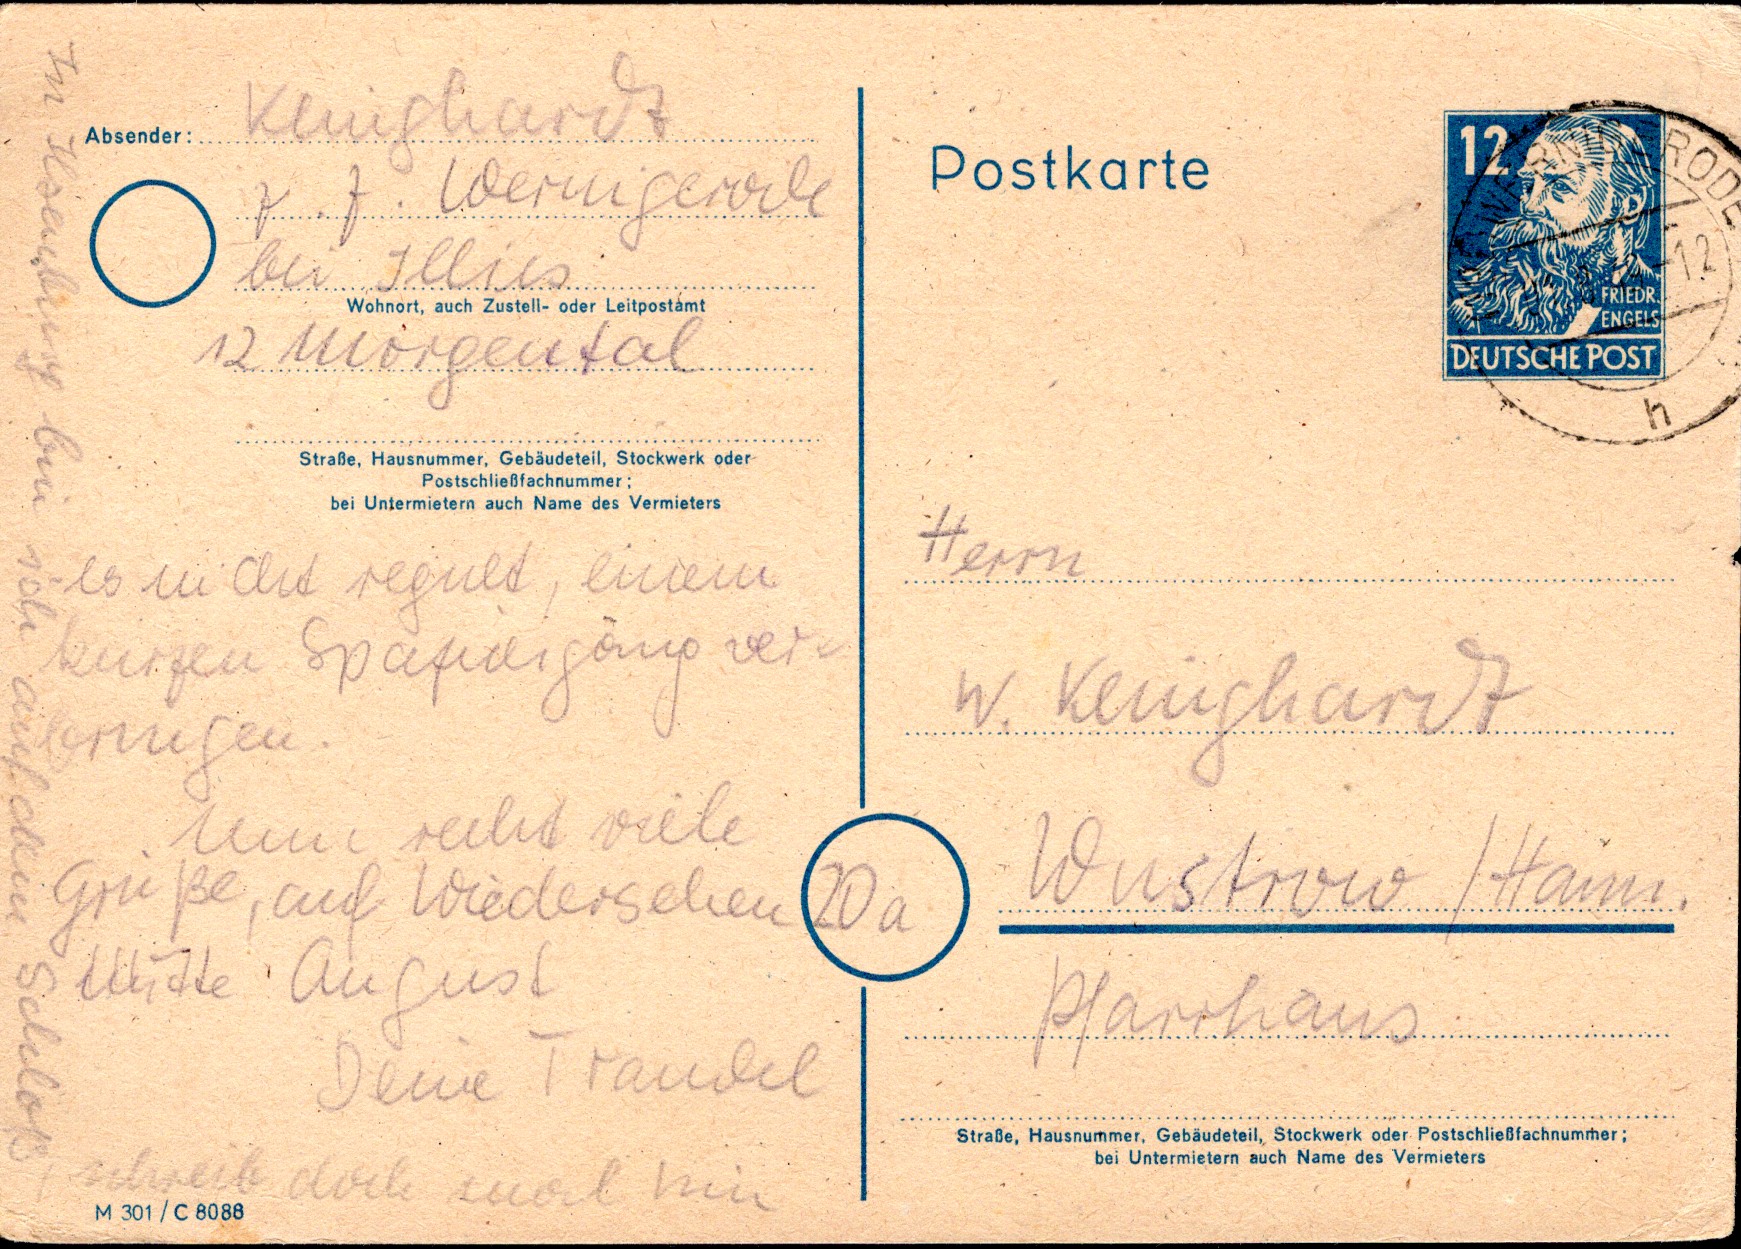 Absender: Kenighardt
z. Z. Wernigerode
bei Illies
Wohnort, auch Zustell- oder Leitpostamt
12 Morgental
Straße, Hausnummer, Gebäudeteil, Stockwerk oder
Postschließfachnummer;
bei Untermietern auch Name des Vermieters
es nicht regnet, einem
kurzen Spaziergang ver-
Nun recht viele
Grüße, auf Wiedersehen
Mitte August
Deine Traudel
In Ilsenburg bin ich auf dem Schloß,
schreib doch mal hin
M 301 / C 8088
Postkarte
12
FRIEDR.
ENGELS
DEUTSCHE POST
WERNIGERODE
-12
h
Herrn
W. Kenighardt
20a
Wustrow / Hann.
Pfarrhaus
Straße, Hausnummer, Gebäudeteil, Stockwerk oder Postschließfachnummer;
bei Untermietern auch Name des Vermieters